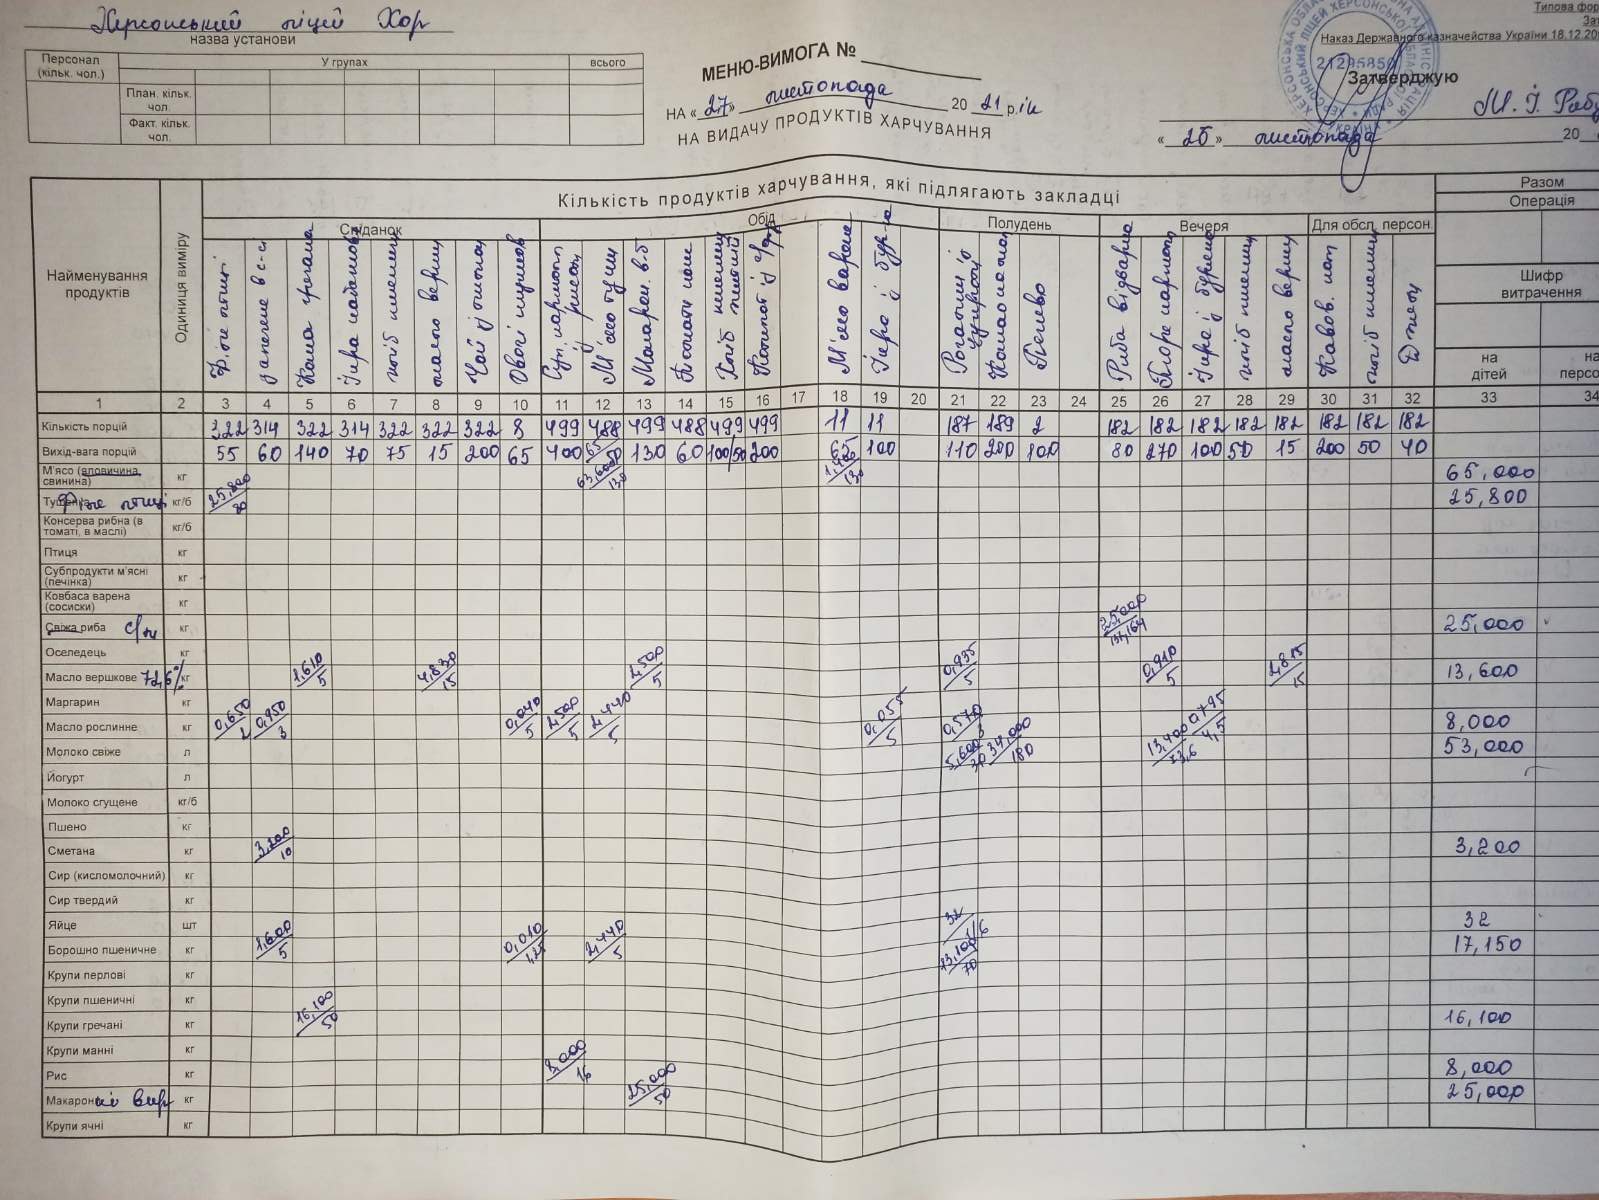 Херсонський ліцей Хор
назва установи
Типова фор
За
Наказ Державного казначейства України 18.12.20
Персонал (кільк. чол.)
У групах
всього
План. кільк. чол.
Факт. кільк. чол.
МЕНЮ-ВИМОГА №
НА «27» листопада 2021 р.
НА ВИДАЧУ ПРОДУКТІВ ХАРЧУВАННЯ
21295850
Затверджую
М. І.
листопада 20
Найменування продуктів
Одиниця виміру
Кількість продуктів харчування, які підлягають закладці
Разом
Операція
Шифр витрачення
на дітей
на персо
Сніданок
Обід
Полудень
Вечеря
Для обсл. персон.
Філе птиці
запечене в с-сі
Каша гречана
хліб пшенич
масло верш
Чай
Суп
рисом
М'ясо туш
Макарон. в-б
Хліб
Компот
М'ясо варене
Ікра з буряка
Рогалик із
Печиво
Риба відварна
Пюре картоп
Ікра з буряка
хліб пшенич
масло верш
хліб пшенич
1 2 3 4 5 6 7 8 9 10 11 12 13 14 15 16 17 18 19 20 21 22 23 24 25 26 27 28 29 30 31 32 33 34
Кількість порцій 322 314 322 314 322 322 322 8 499 488 499 488 499 499 11 11 187 189 2 182 182 182 182 182 182 182 182
Вихід-вага порцій 55 60 140 70 75 15 200 65 400 65 130 60 100/50 200 65 100 110 200 100 80 270 100 50 15 200 50 40
М'ясо (яловичина, свинина) кг 63,600/130 1,400/130 65,000
Філе птиці кг/б 25,800/80 25,800
Консерва рибна (в томаті, в маслі) кг/б
Птиця кг
Субпродукти м'ясні (печінка) кг
Ковбаса варена (сосиски) кг
Свіжа риба с/м кг 25,000 25,000
Оселедець кг
Масло вершкове 72,6% кг 1,610/5 4,830/15 2,500/5 0,935/5 0,910/5 2,815/15 13,600
Маргарин кг
Масло рослинне кг 0,650/2 0,950/3 0,040/5 2,500/5 2,440/5 0,055/5 0,570/3 0,795/4,5 8,000
Молоко свіже л 5,600/30 34,000/180 13,400/73,6 53,000
Йогурт л
Молоко сгущене кг/б
Пшено кг
Сметана кг 3,200/10 3,200
Сир (кисломолочний) кг
Сир твердий кг
Яйце шт 32/1/6 32
Борошно пшеничне кг 1,600/5 0,010/1,25 2,440/5 13,100/70 17,150
Крупи перлові кг
Крупи пшеничні кг
Крупи гречані кг 16,100/50 16,100
Крупи манні кг
Рис кг 8,000/16 8,000
Макаронні вир кг 25,000/50 25,000
Крупи ячні кг